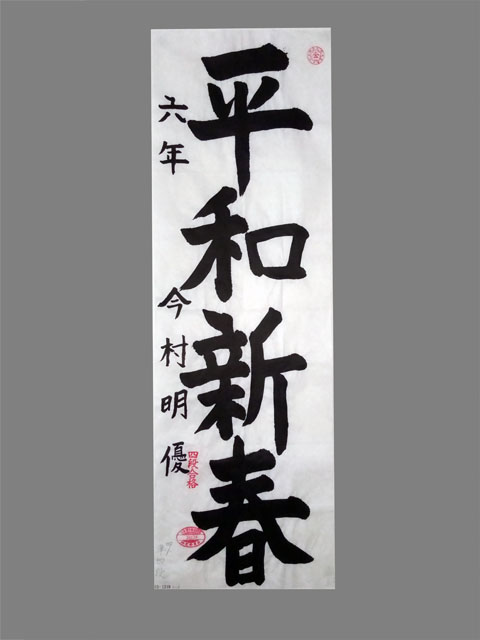 平和新春
六年 今村明優
四段合格